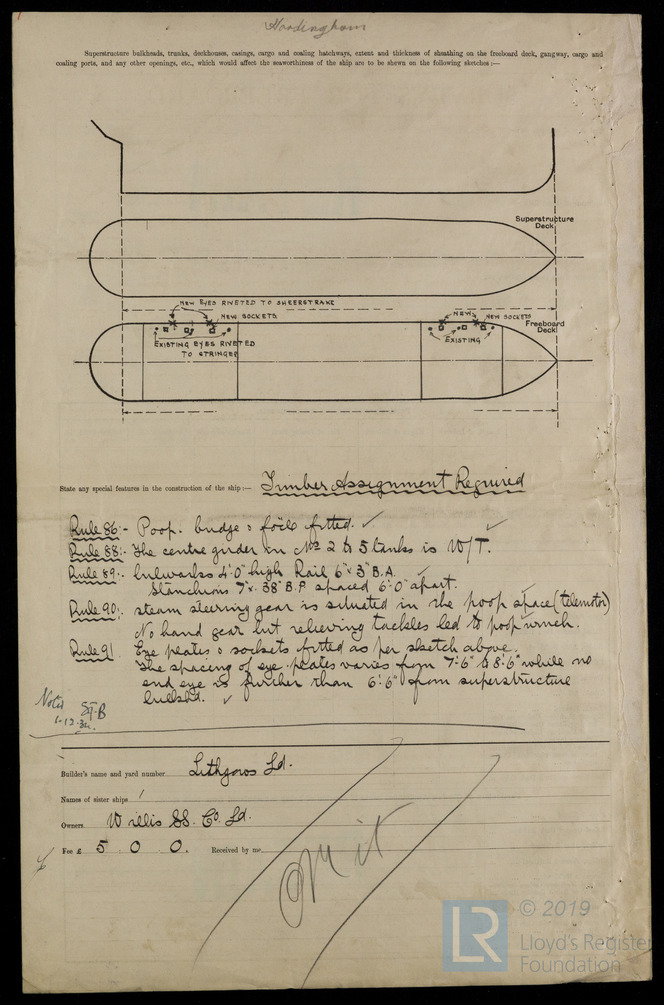 Superstructure bulkheads, trunks, deckhouses, casings, cargo and coaling hatchways, extent and thickness of sheathing on the freeboard deck, gangway, cargo and
coaling ports, and any other openings, etc., which would affect the seaworthiness of the ship are to be shewn on the following sketches :—
Superstructure
Deck
NEW EYES RIVETED TO SHEERSTRAKE
NEW SOCKETS
NEW
NEW SOCKETS
Freeboard
Deck
EXISTING EYES RIVETED
TO STRINGER
EXISTING
State any special features in the construction of the ship :— Timber Assignment Required
Rule 86:- Poop. bridge & fo'cle fitted. ✓
Rule 88:- The centre girder in Nos 2 to 5 tanks is W/T. ✓
Rule 89:- bulwarks 4'.0" high Rail 6" x 3" B.A.
Stanchions 7" x .38" B.P spaced 6'.0" apart.
Rule 90:- steam steering gear is situated in the poop space (telemotor)
No hand gear but relieving tackles led to poop winch.
Rule 91 Eye plates & sockets fitted as per sketch above.
The spacing of eye plates varies from 7'.6" to 8'.6" while no
end eye is further than 6'.6" from superstructure
bulkhd. ✓
Noted
1-12-30.
Builder's name and yard number Lithgows Ld.
Names of sister ships /
Owners Willis SS. Co. Ld.
Fee £ 5 . 0 . 0 . Received by me,
Omit
LR © 2019
Lloyd's Register
Foundation